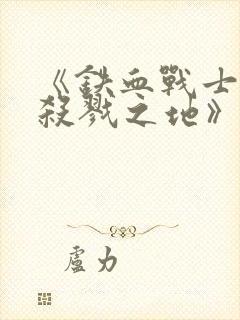 《鉄血戰士
殺戮之地》
盧力